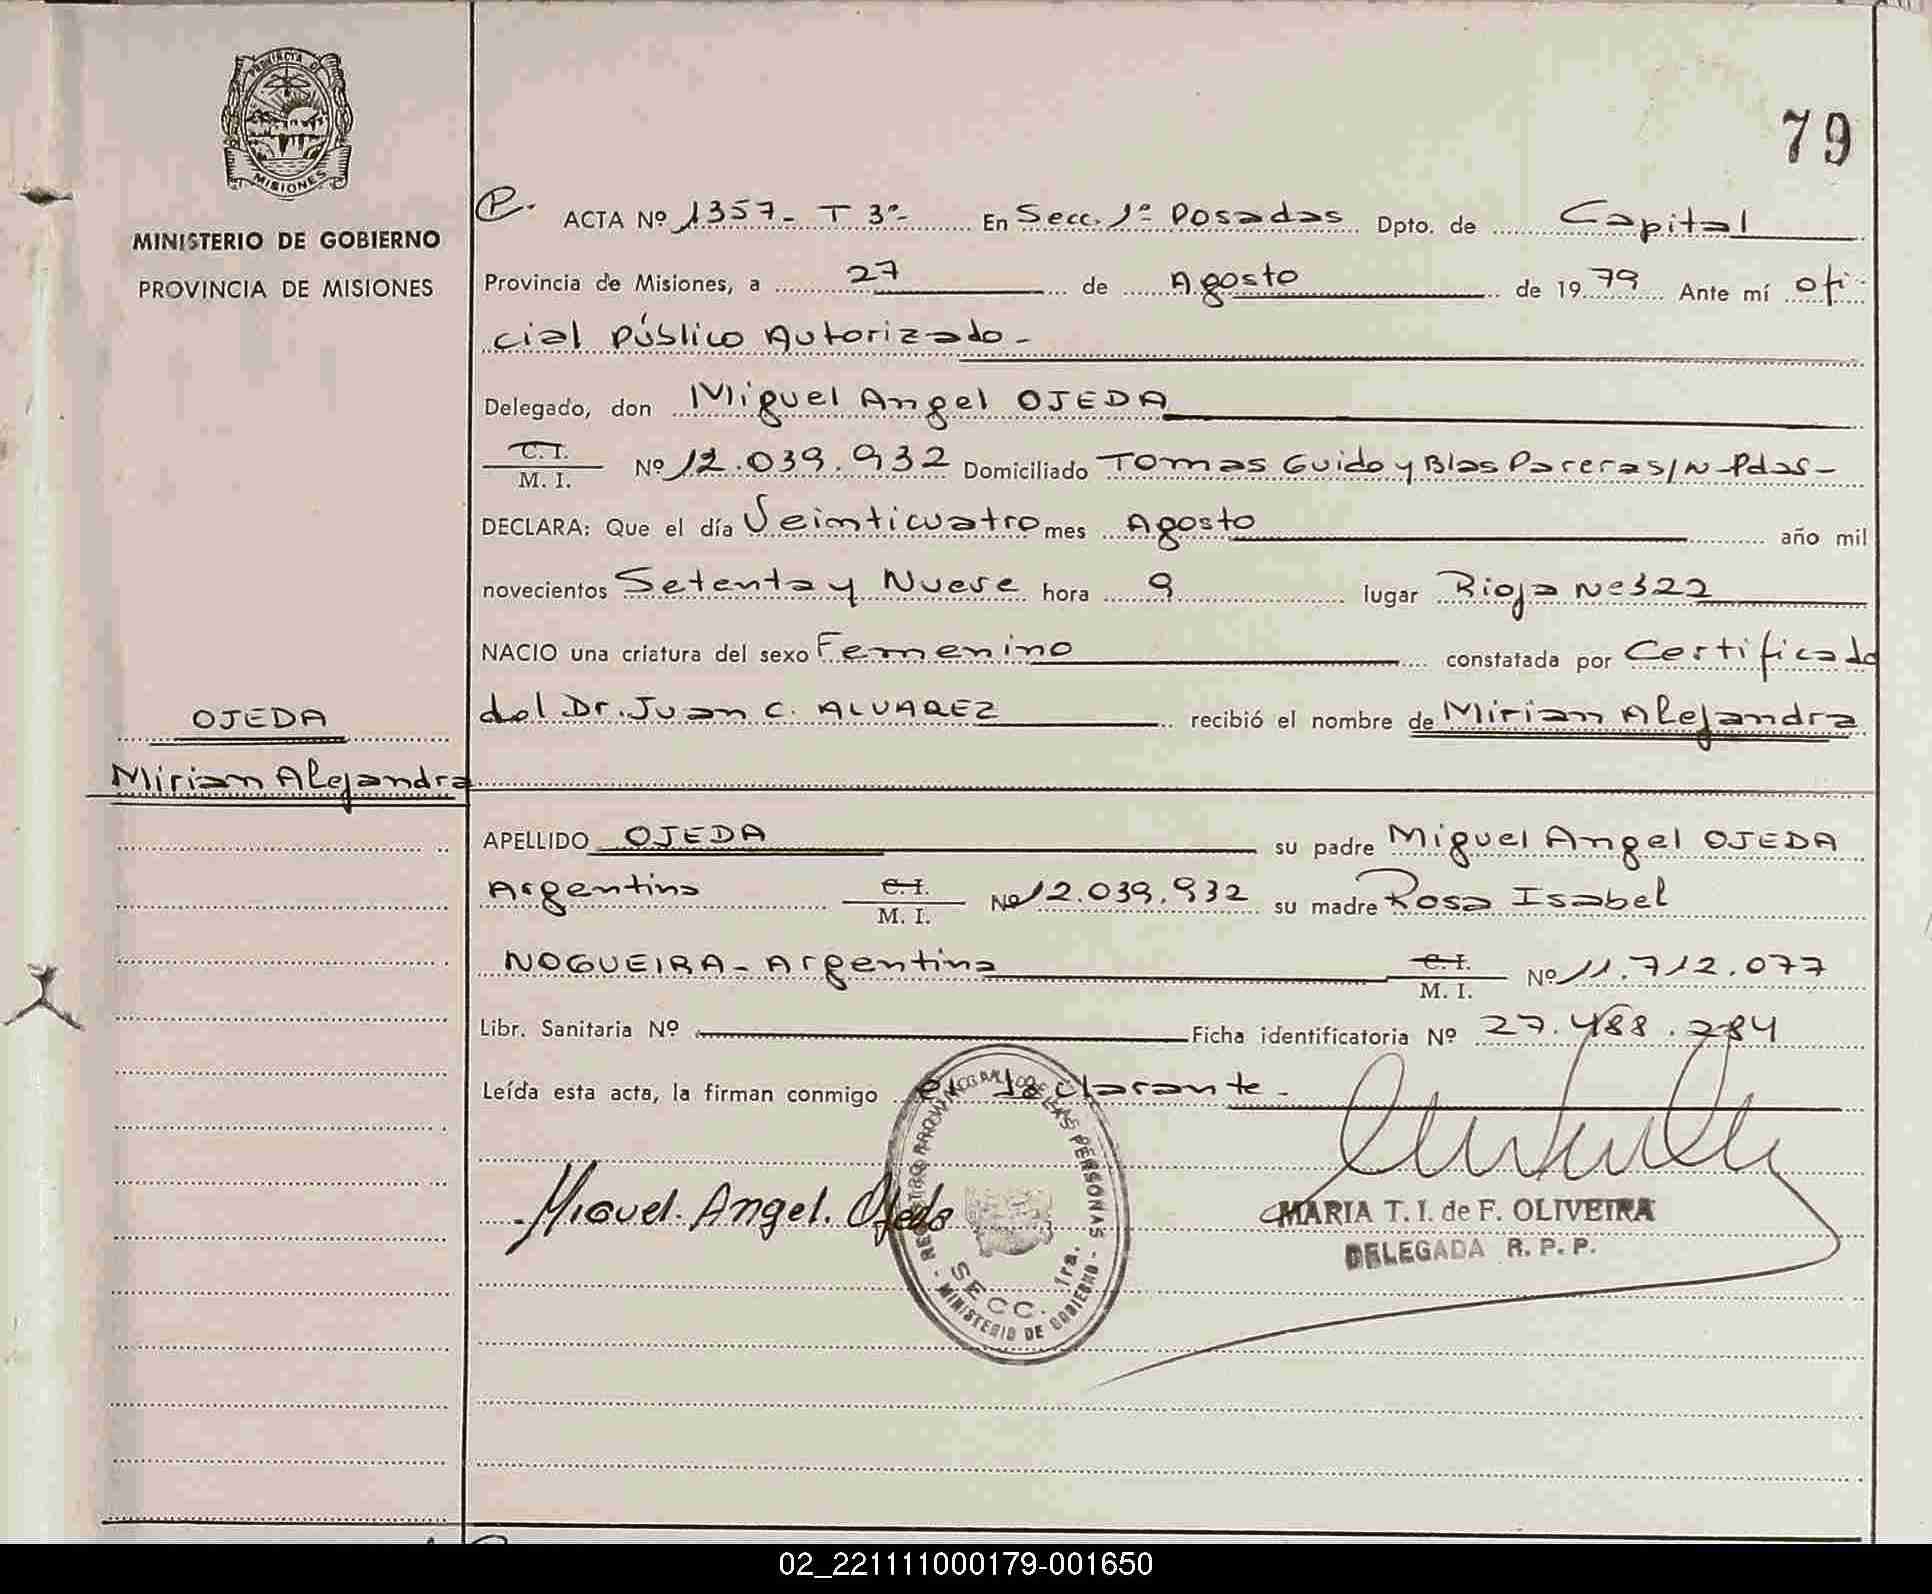 PROVINCIA DE
MISIONES
MINISTERIO DE GOBIERNO
PROVINCIA DE MISIONES
79
P. ACTA Nº 1357- T 3º- En Secc. 1º Posadas Dpto. de Capital
Provincia de Misiones, a 27 de Agosto de 1979 Ante mí ofi-
cial Público Autorizado-
Delegado, don Miguel Angel OJEDA
C.I. / M. I. Nº 12.039.932 Domiciliado Tomas Guido y Blas Parera s/n-Pdas-
DECLARA: Que el día Veinticuatro mes Agosto año mil
novecientos Setenta y Nueve hora 9 lugar Rioja Nº 322
NACIO una criatura del sexo Femenino constatada por Certificado
del Dr. Juan C. ALVAREZ recibió el nombre de Mirian Alejandra
OJEDA
Mirian Alejandra
APELLIDO OJEDA su padre Miguel Angel OJEDA
Argentino C.I. / M. I. Nº 12.039.932 su madre Rosa Isabel
NOGUEIRA- Argentina C.I. / M. I. Nº 11.712.077
Libr. Sanitaria Nº Ficha identificatoria Nº 27.488.284
Leída esta acta, la firman conmigo el declarante-
Miguel. Angel. Ojeda
REGISTRO PROVINCIAL DE LAS PERSONAS - MINISTERIO DE GOBIERNO -
SECC. 1ra.
MARIA T. I. de F. OLIVEIRA
DELEGADA R. P. P.
02_221111000179-001650